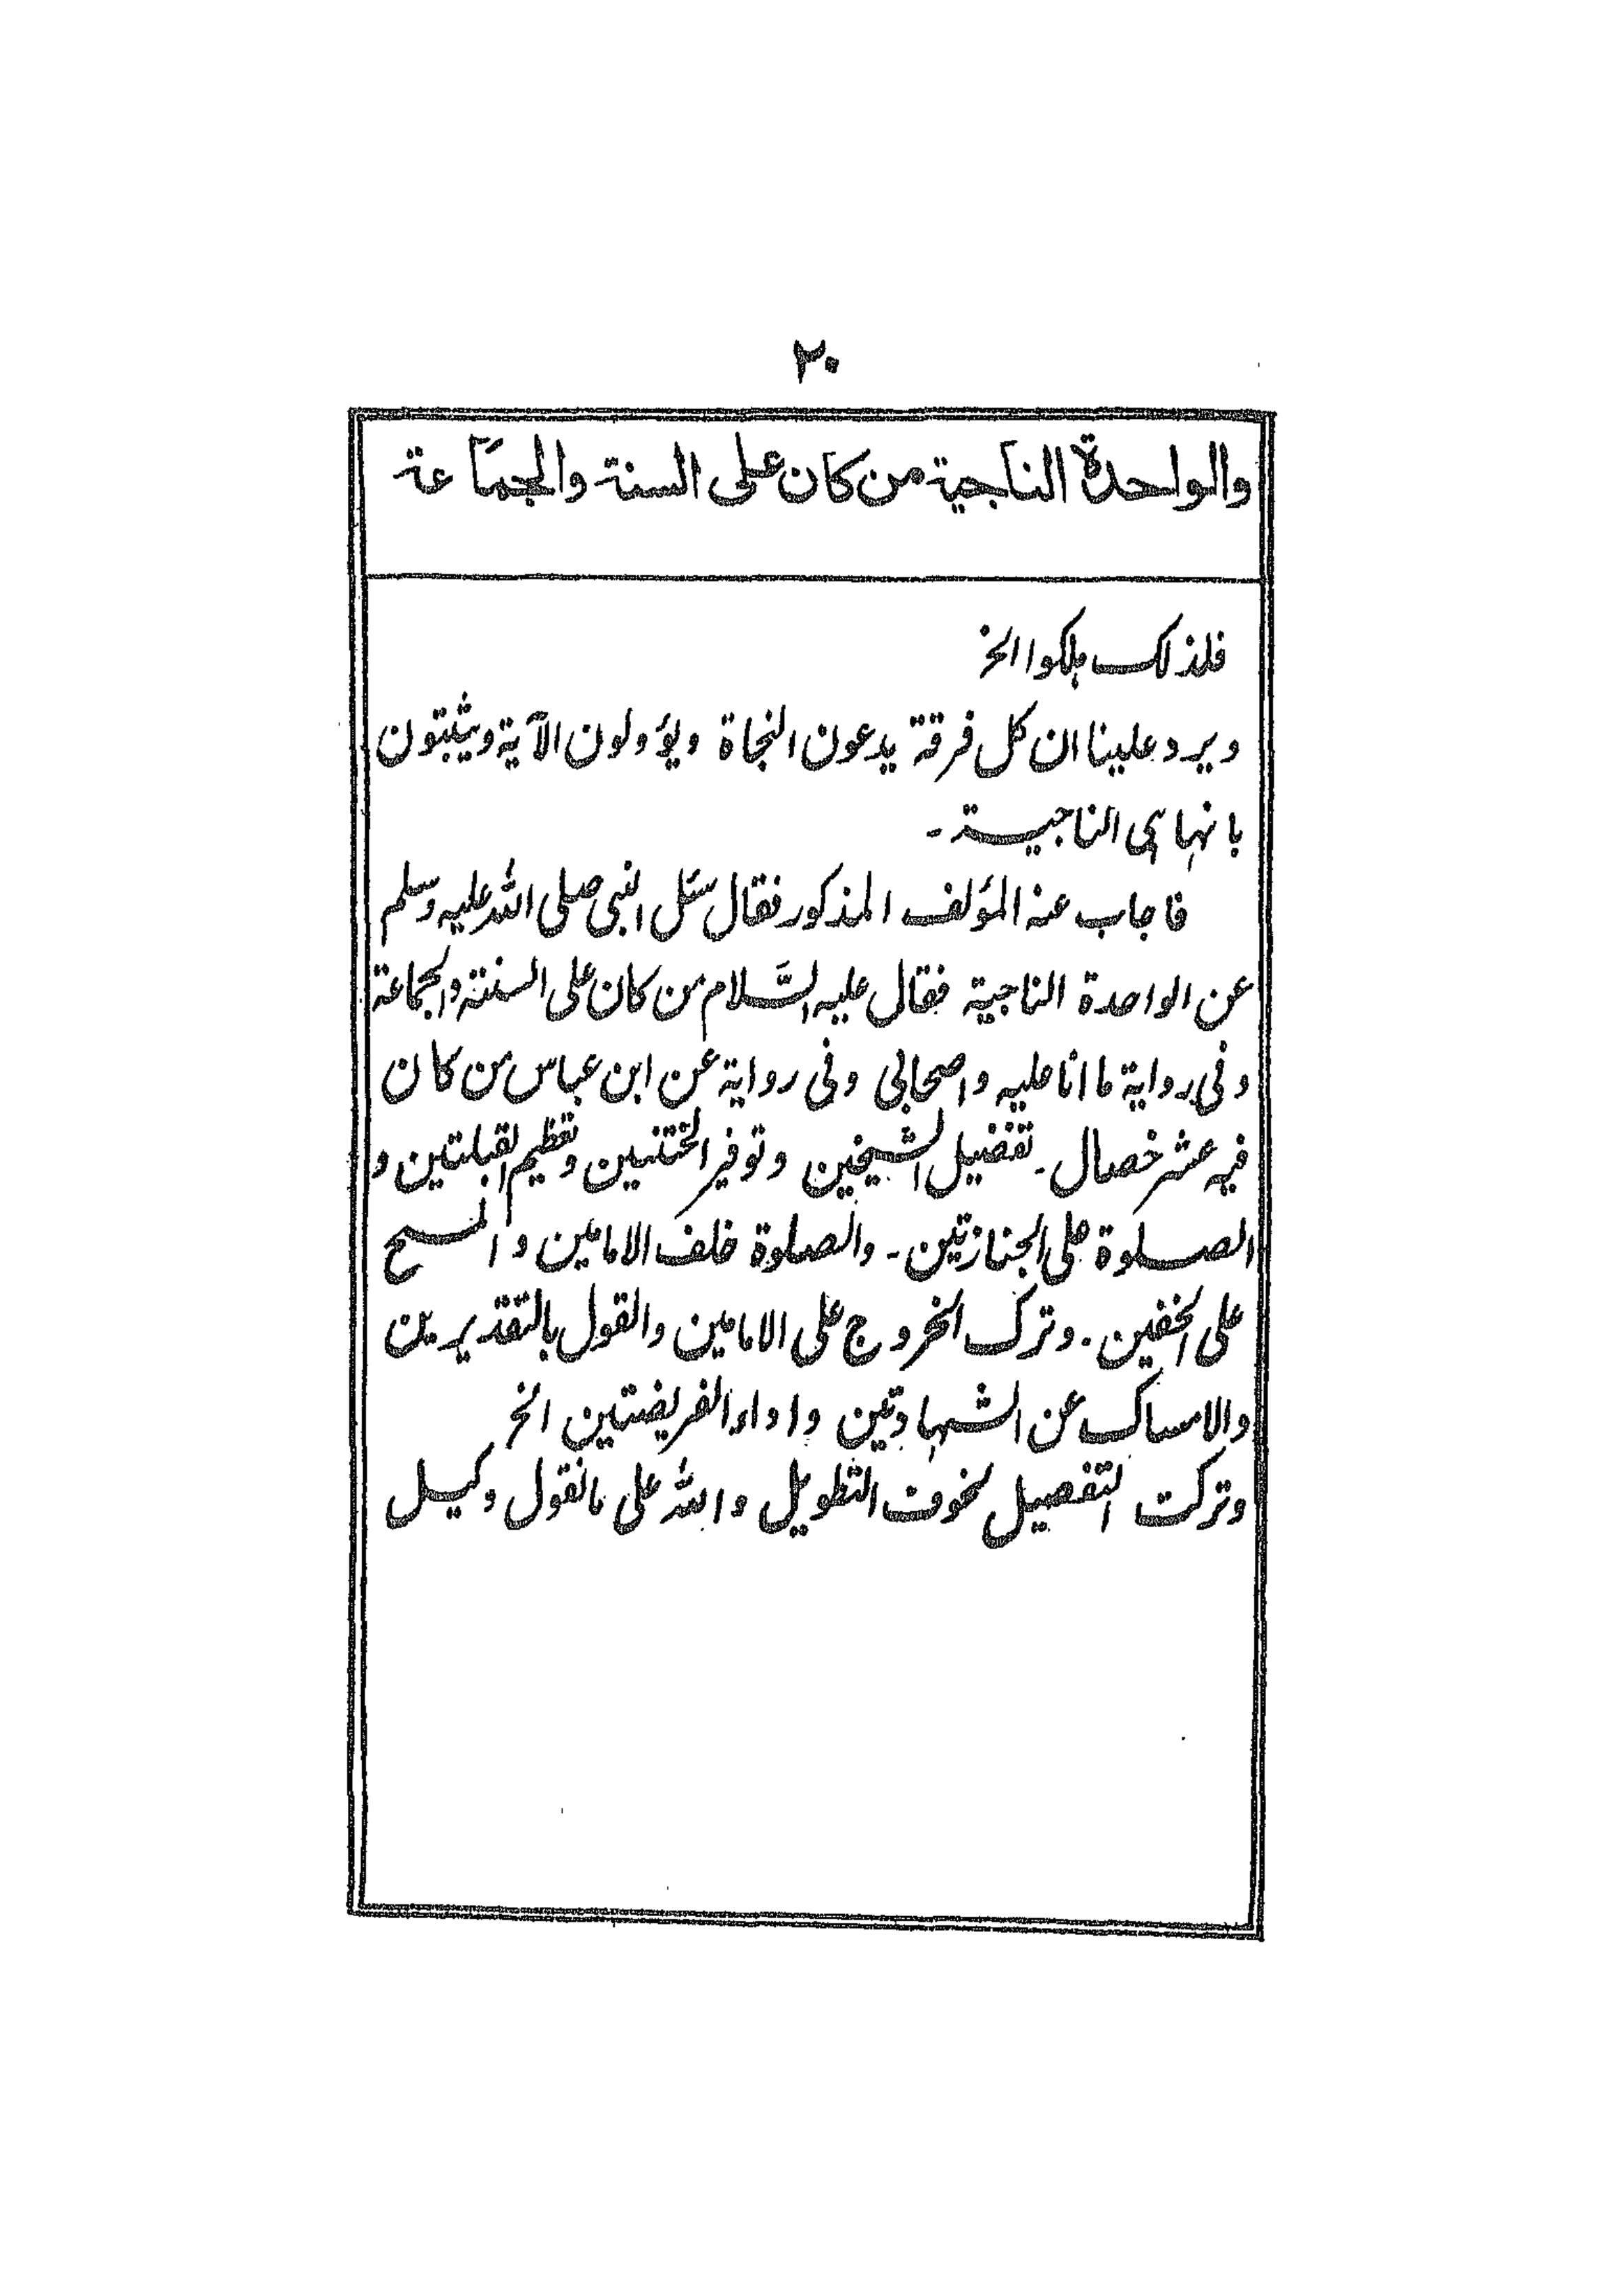 ٢٠
والواحدة الناجية من كان على السنة والجمَاعة
فلذلك ہلكوا الخ
ويرد علينا ان كل فرقة يدعون النجاة ويؤولون الآية ويثبتون
بانہا ہی الناجية -
فاجاب عنه المؤلف المذكور فقال سئل النبی صلی اللہ علیہ وسلم
عن الواحدة الناجية فقال عليه السَّلام من كان على السنة والجماعة
وفی رواية ما انا عليه واصحابی وفی رواية عن ابن عباس من كان
فيه عشر خصال - تفضيل الشيخين وتوفير الختنين وتعظيم القبلتين و
الصلوة على الجنازتين - والصلوة خلف الامامين والمسح
على الخفين . وترك الخروج على الامامين والقول بالتقديرين
والامساك عن الشہادتين واداء الفريضتين الخ
وتركت التفصيل لخوف التطويل واللہ على ما نقول وكيل